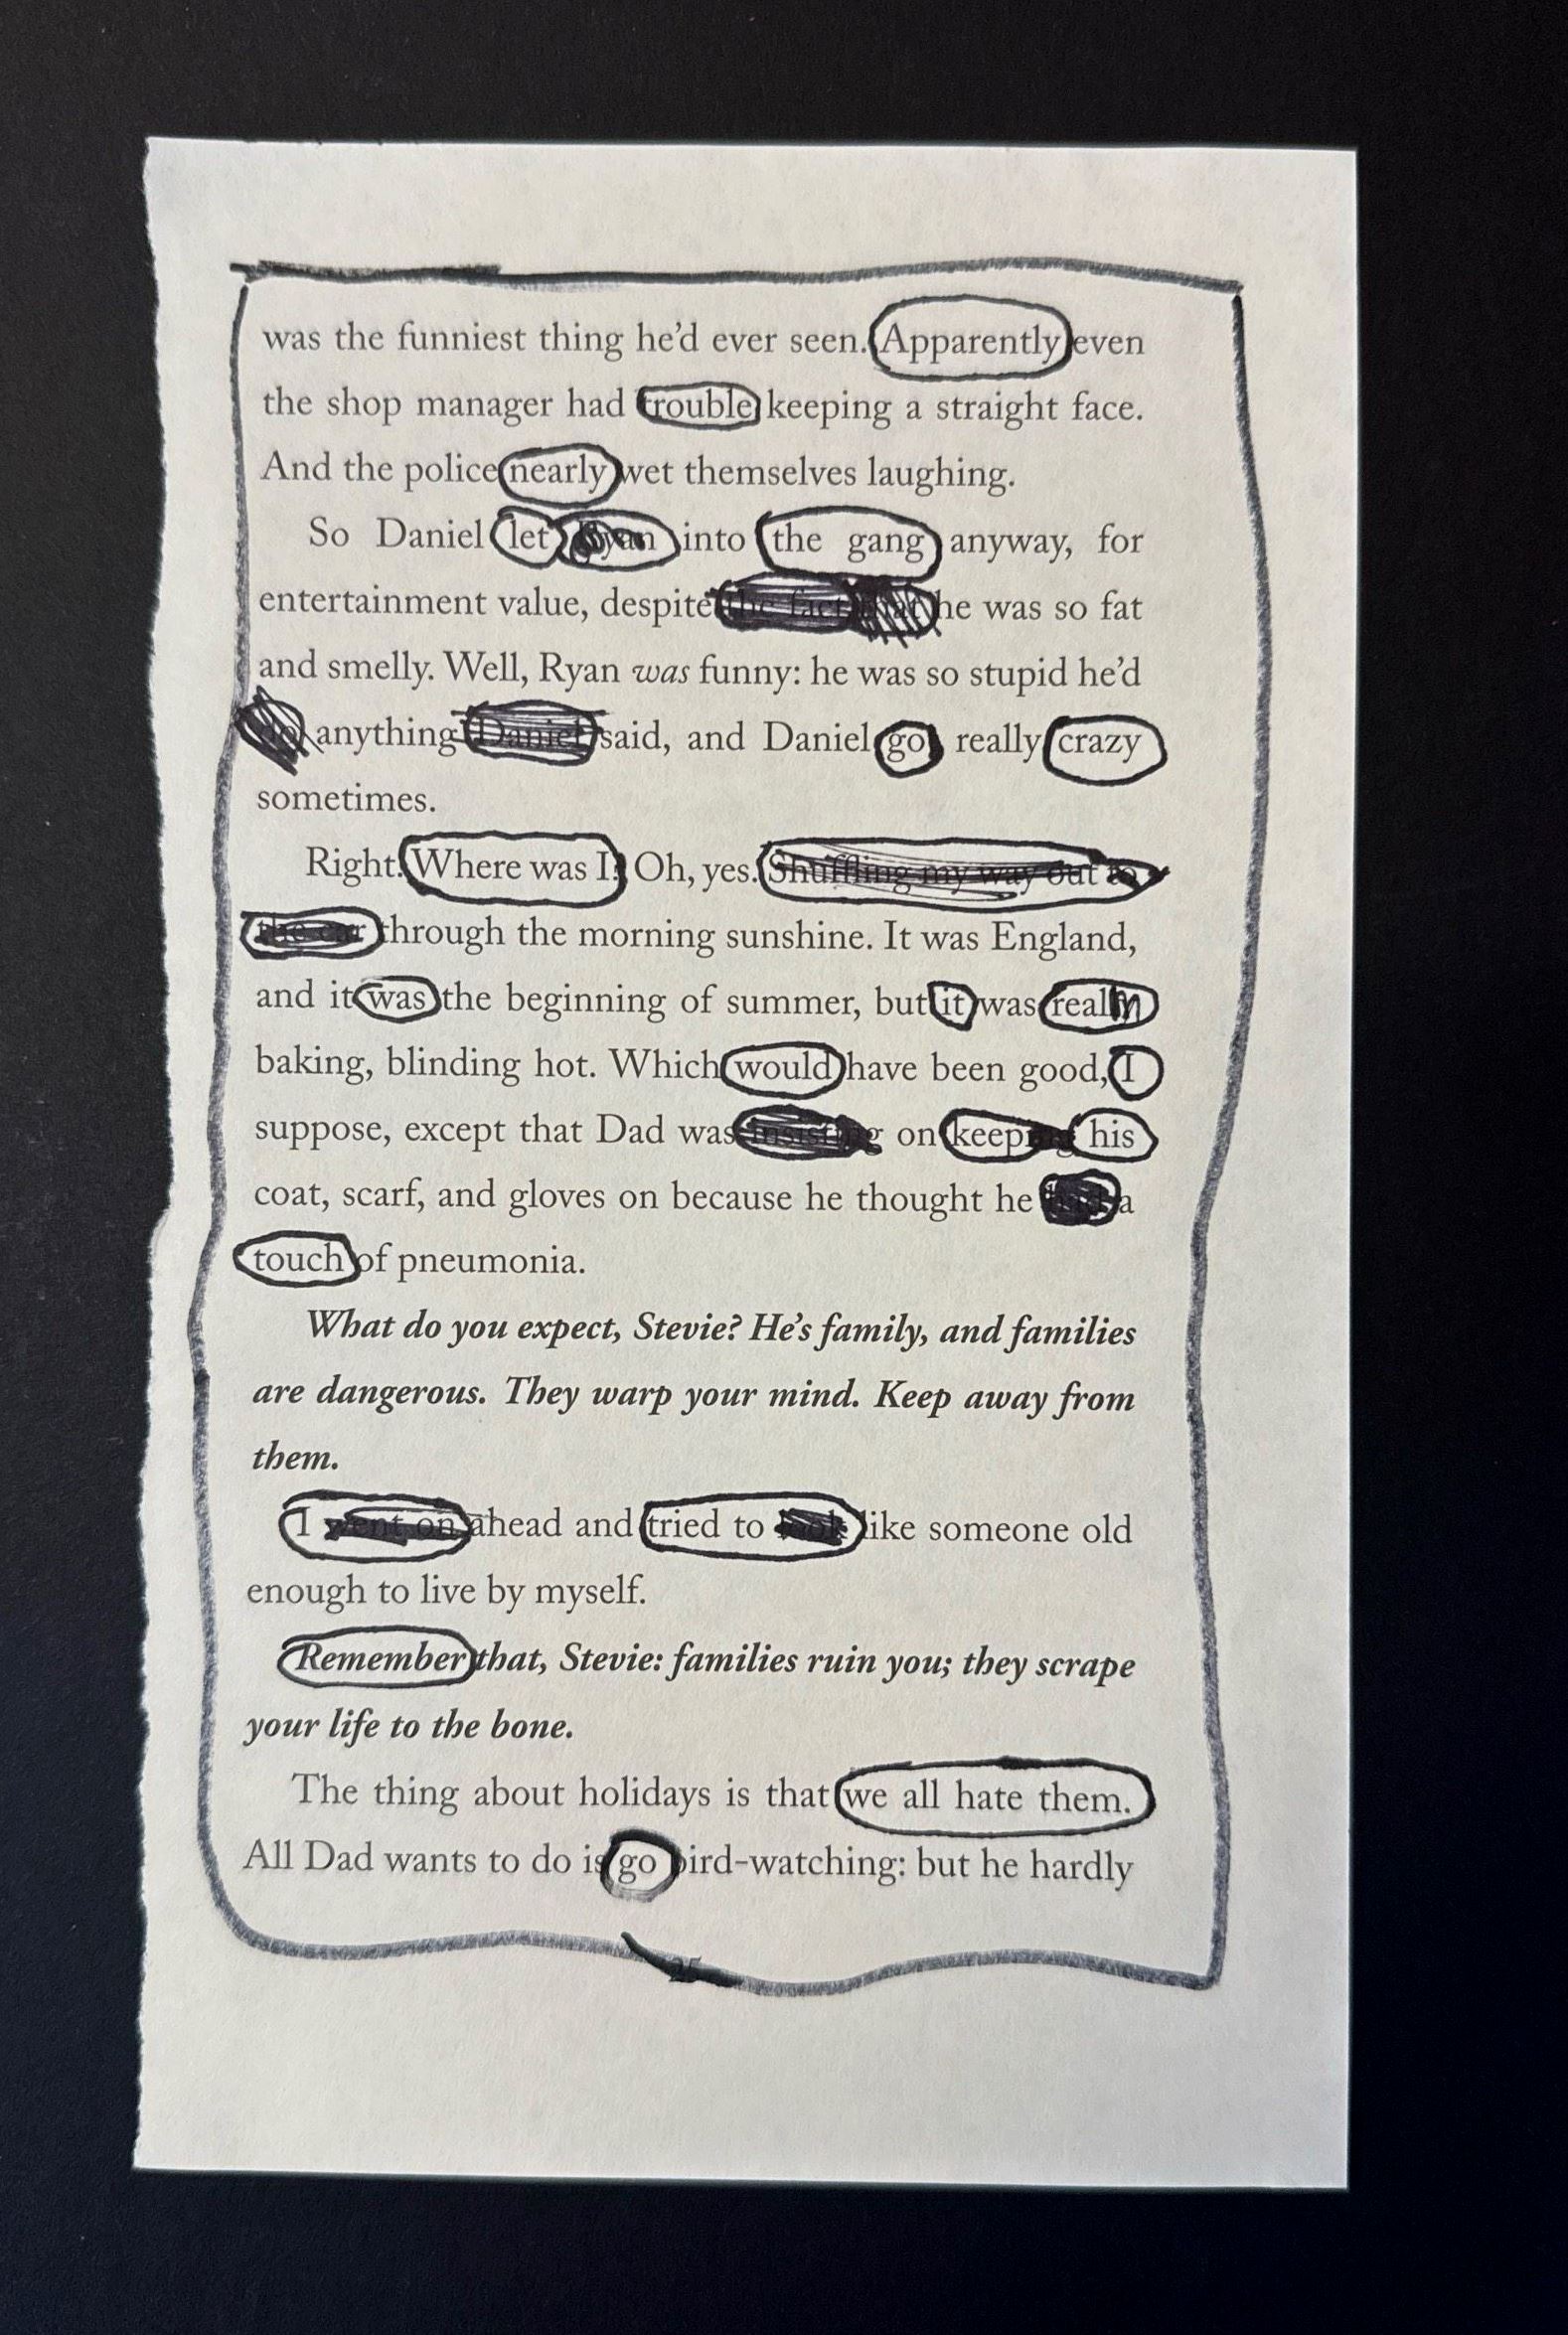 was the funniest thing he'd ever seen. Apparently even
the shop manager had trouble keeping a straight face.
And the police nearly wet themselves laughing.
So Daniel let into the gang anyway, for
entertainment value, despite the fact that he was so fat
and smelly. Well, Ryan was funny: he was so stupid he'd
anything Daniel said, and Daniel go really crazy
sometimes.
Right. Where was I? Oh, yes. Shuffling my way out to
the car through the morning sunshine. It was England,
and it was the beginning of summer, but it was real
baking, blinding hot. Which would have been good, I
suppose, except that Dad was insisting on keeping his
coat, scarf, and gloves on because he thought he a
touch of pneumonia.
What do you expect, Stevie? He's family, and families
are dangerous. They warp your mind. Keep away from
them.
I went on ahead and tried to look like someone old
enough to live by myself.
Remember that, Stevie: families ruin you; they scrape
your life to the bone.
The thing about holidays is that we all hate them.
All Dad wants to do is go bird-watching: but he hardly